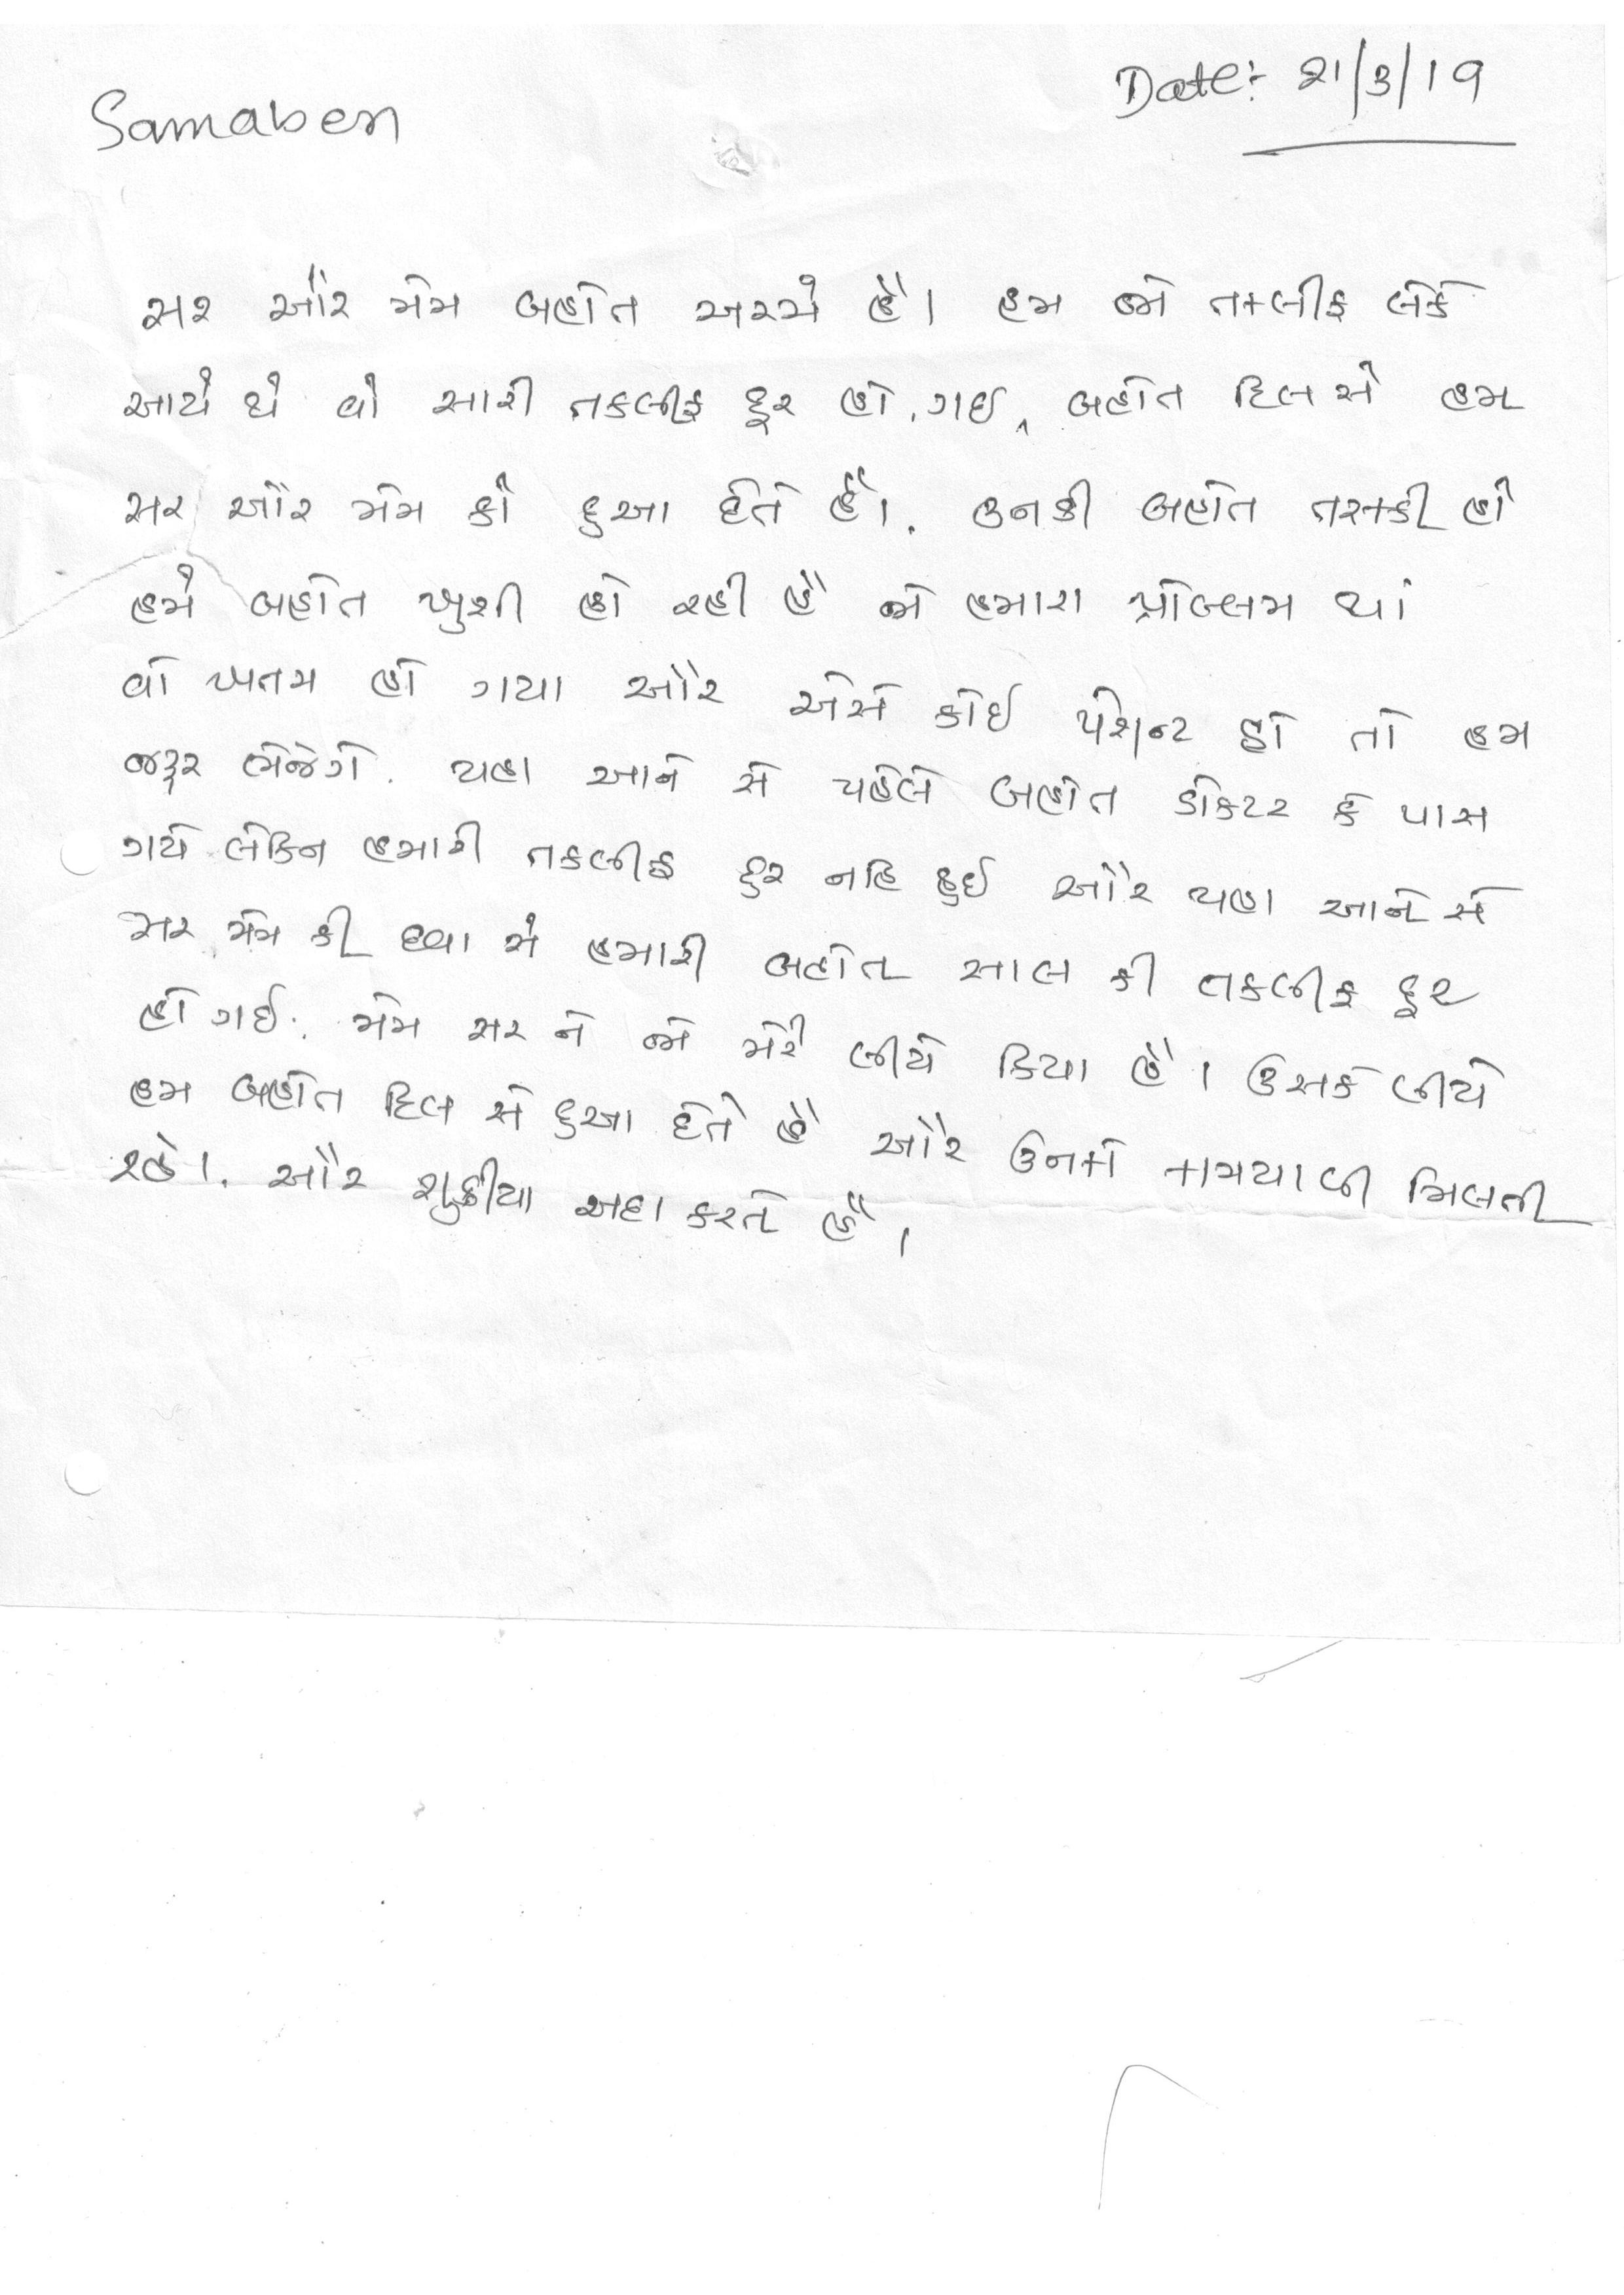 Samaben
Date:- 21/3/19
સર ઔર મેમ બહોત અચ્છે હૈ। હમ જો તકલીફ લેકે
આયે થે વો સારી તકલીફ દૂર હો ગઇ, બહોત દિલ સે હમ
સર ઔર મેમ કો દુઆ દેતે હૈ।. ઉનકી બહોત તરક્કી હો
હમે બહોત ખુશી હો રહી હૈ જો હમારા પ્રોબ્લમ થાં
વો ખતમ હો ગયા ઔર એસે કોઇ પેશન્ટ હો તો હમ
જરૂર ભેજેગે. યહા આને સે પહેલે બહોત ડોકટર કે પાસ
ગયે લેકિન હમારી તકલીફ દુર નહિ હુઈ ઔર યહા આને સે
સર મેમ કી દવા સે હમારી બહોત સાલ કી તકલીફ દૂર
હો ગઇ. મેમ સર ને જો મેરે લીયે કિયા હૈ। ઉસકે લીયે
હમ બહોત દિલ સે દુઆ દેતે હૈ ઔર ઉનકો કામયાબી મિલતી
રહે।. ઔર શુક્રીયા અદા કરતે હૈ।